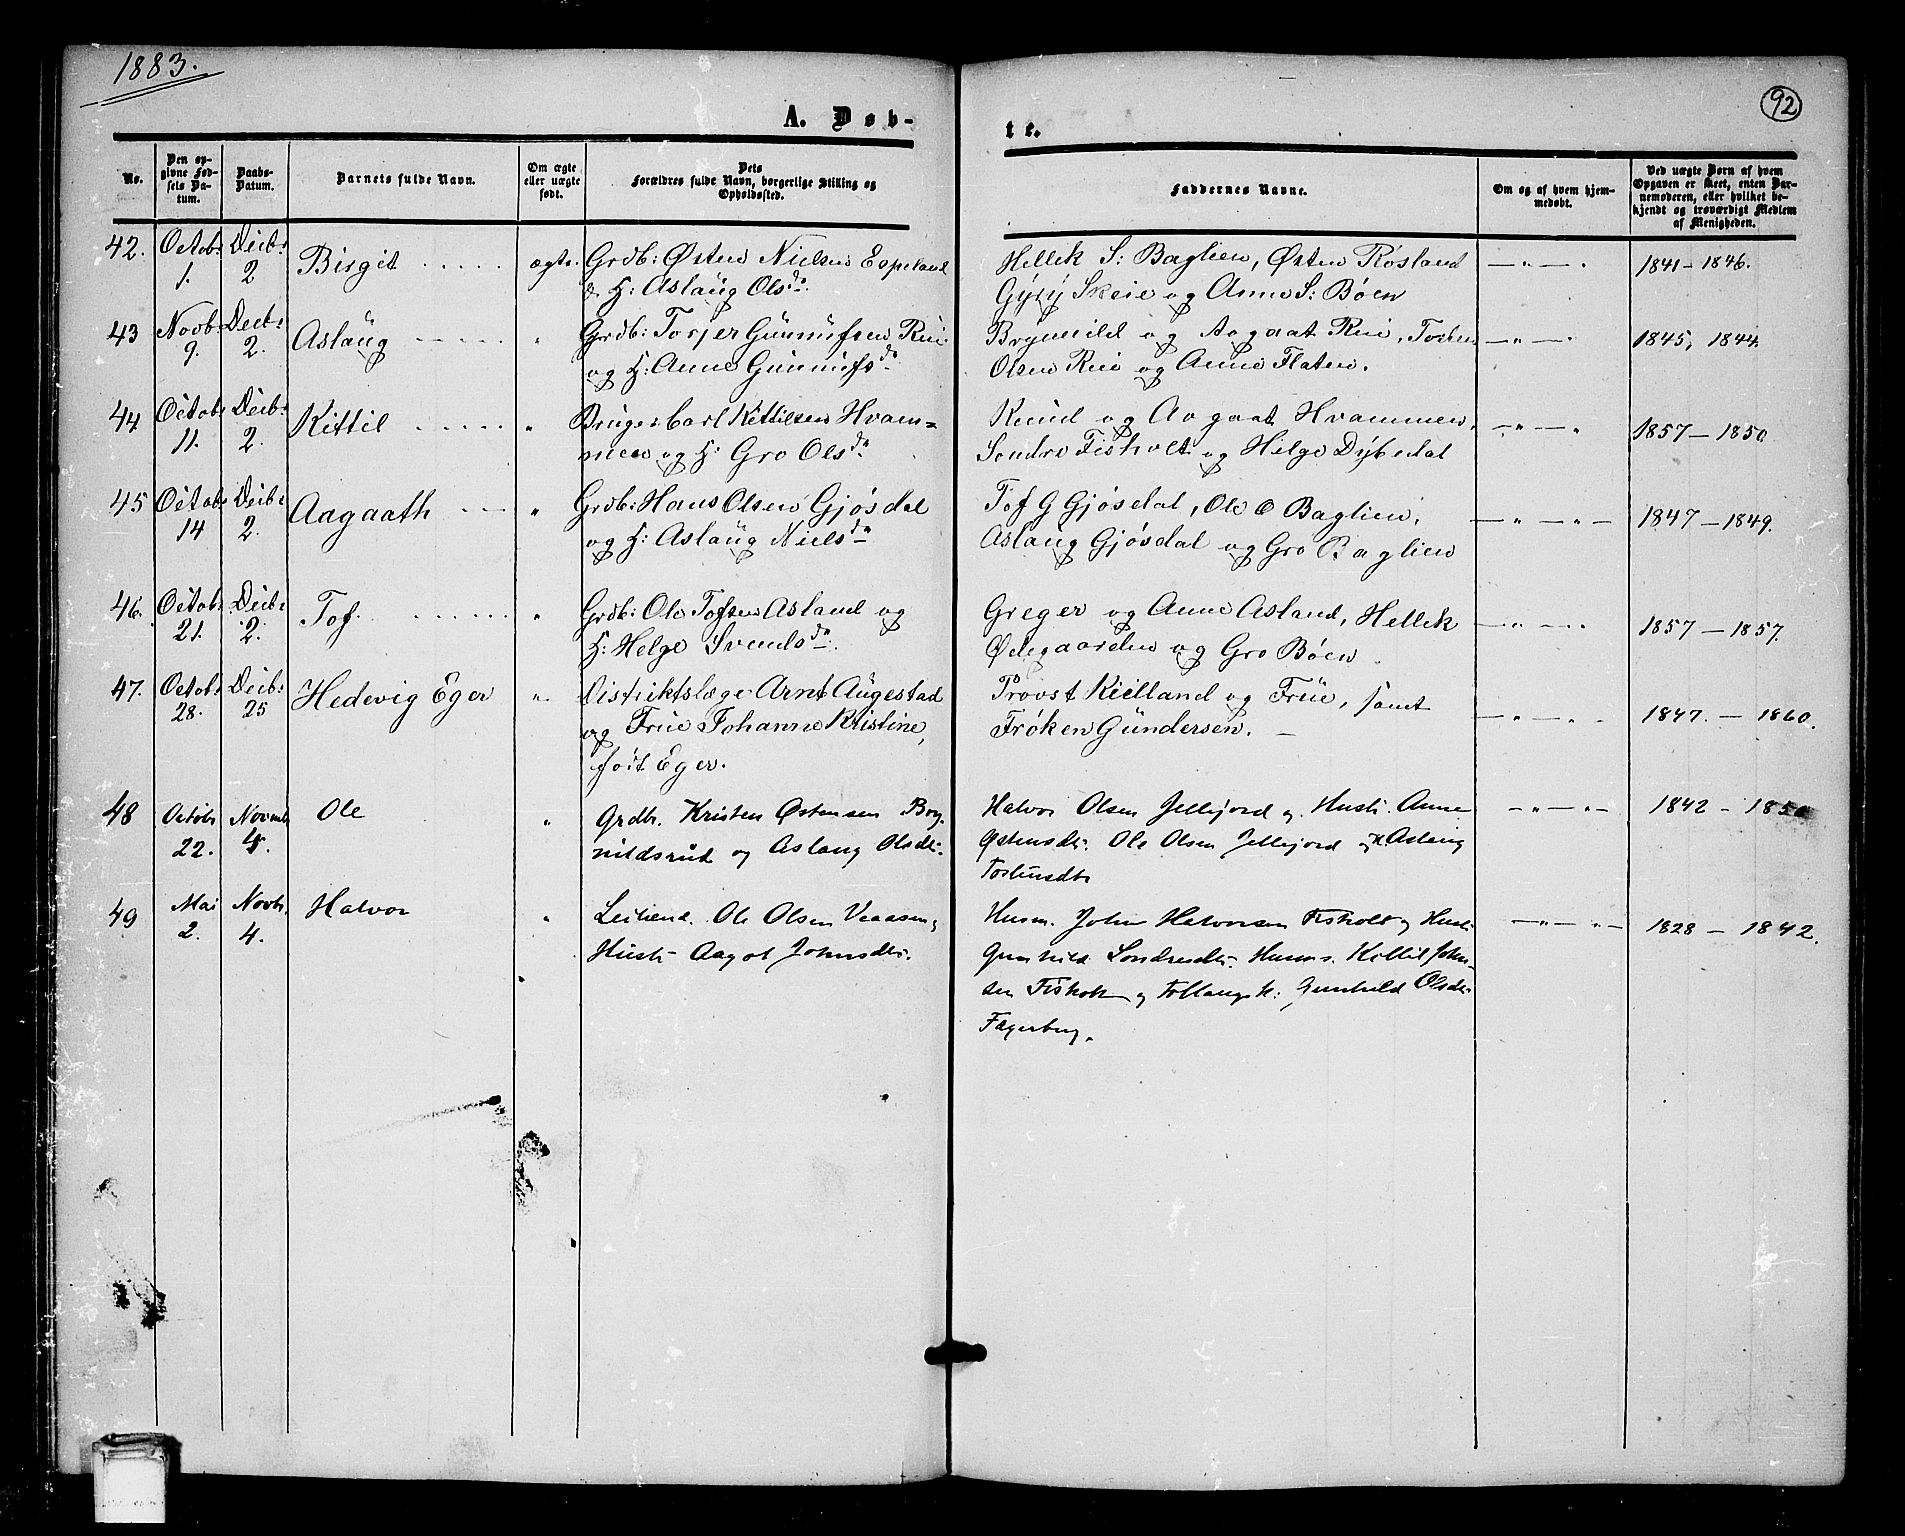 1883.
92
A. Døb-
te.
No.
Den opgivne Fødsels Datum.
Daabs-Datum.
Barnets fulde Navn.
Om ægte eller uægte født.
Dets Forældres fulde Navn, borgerlige Stilling og Opholdssted.
Faddernes Navne.
Om og af hvem hjemmedøbt.
Ved uægte Børn af hvem Opgaven er skeet, enten Barnemoderen, eller hvilket bekjendt og troværdigt Medlem af Menigheden.
42. Octob: 1. Decb: 2 Birgit ægte. Grdb: Østen Nielsen Espeland
& H: Aslaug Olsda.
Hellik S: Baglien, Østen Røsland — " — " 1841 - 1846.
Gyry Skeie og Anne S: Bøen
43 Novb 9. Decb: 2. Aslaug " Grdb: Torjer Gunnufsen Rui
og H: Anne Gunnufsda.
Brynnild og Aagaat Rui, Torben — " — " 1845, 1844.
Olsen Rui og Anne Flaten.
44 Octob: 11. Decb: 2. Kittil " Bruger Carl Kittilsen Hvam=
men og H: Gro Olsda.
Knud og Aagaat Hvammen, — " — " 1857 — 1850
Sondre Fisholt og Helge Dybedal
45 Octob: 14 Decb: 2. Aagaath " Grdb: Hans Olsen Gjøsdal
og H: Aslaug Nielsda
Tof G Gjøsdal, Ole O Baglien, — " — " — 1847 — 1849.
Aslaug Gjøsdal og Gro Baglien
46. Octob: 21. Decb: 2. Tof. " Grdb: Ole Tofsen Asland og
H: Helge Svendsda.
Greger og Anne Asland, Hellik — " — " 1857 — 1857.
Ødegaarden og Gro Bøen
47. Octob: 28. Decb: 25 Hedevig Eger " Distriktslæge Arnt Augestad
og Frue Johanne Kristine,
født Eger.
Provst Kielland og Frue, samt — " — " 1847. — 1860.
Frøken Gundersen. —
48 Octobr 22. Novemb 4. Ole " Grdbr. Kristen Østensen Bryn
nildsrud og Aslaug Olsdtr.
Halvor Olsen Jellejord og Hustr. Anne — " — " — 1842 - 1850
Østensdtr. Ole Olsen Jellejord og H. Aslaug
49 Mai 2. Novbr. 4. Halvor " Leilend. Ole Olsen Veaasen,
Hustr. Aagot Johnsdtr.
Husm. John Halvorsen Fisholt og Hustr. — " — " — 1828 - 1842.
Gunhild Sondresdtr. Husms. Kittil John-
sen Fisholt og Gunhild Olsdtr.
Fagerberg.